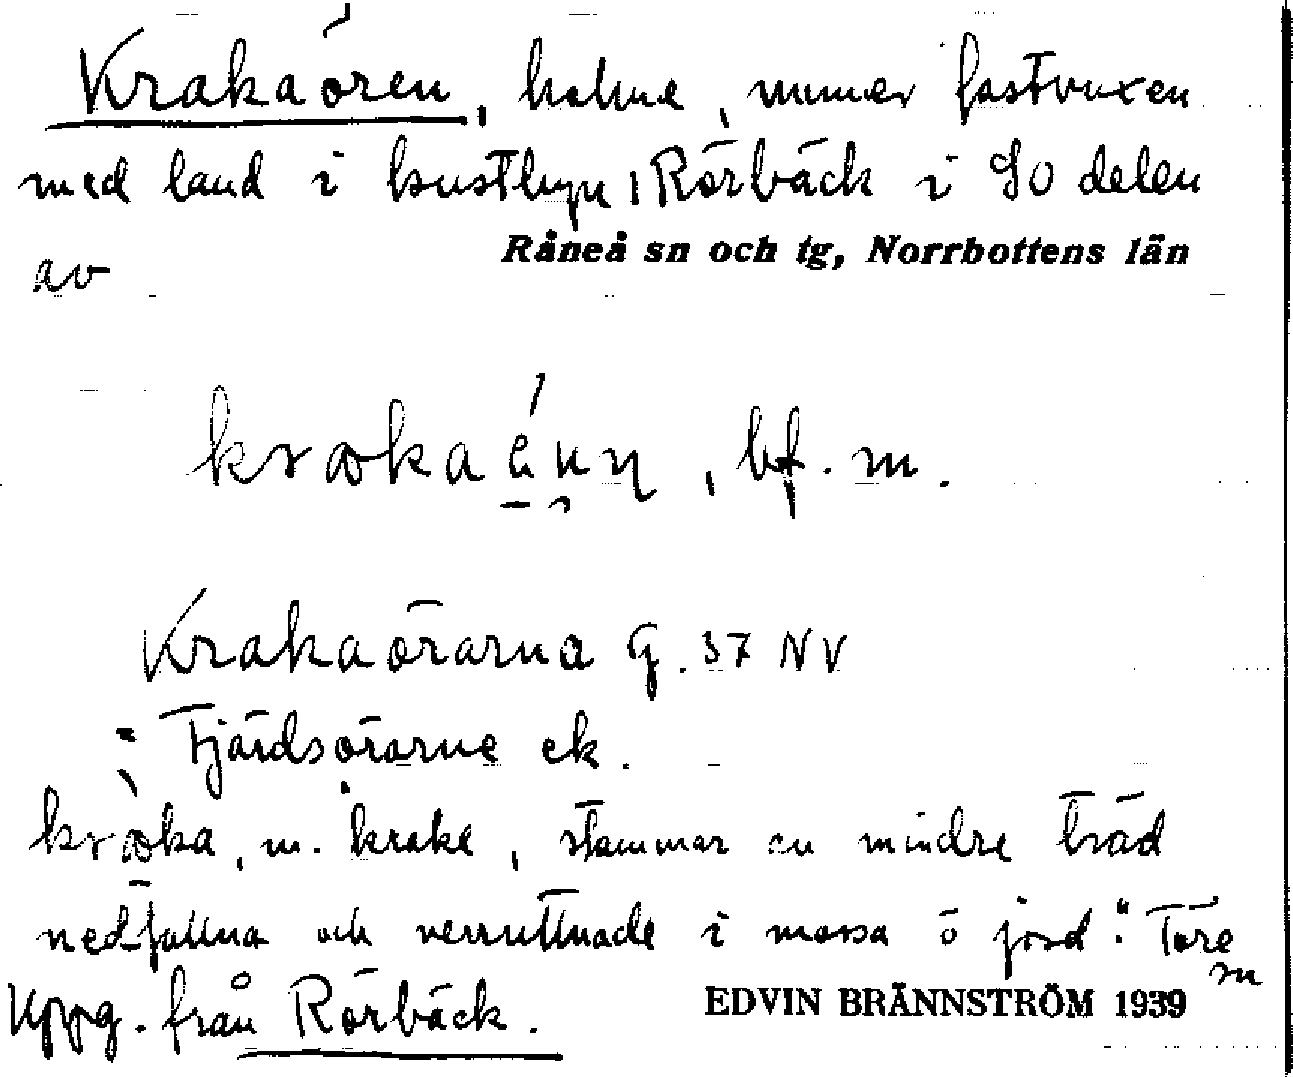 Krakaören, holme, numer fastvuxen
med land i kustbyn, Rörbäck i SO delen
av Råneå sn och tg, Norrbottens län
, bf. m.
Krakaörarna G. 37 NV
: Fjärdsörarne ek.
m. krake, stammar av mindre träd
nedfallna och verruttnade i mossa o jord." Töre
sn
Uppg. från Rörbäck. EDVIN BRÄNNSTRÖM 1939